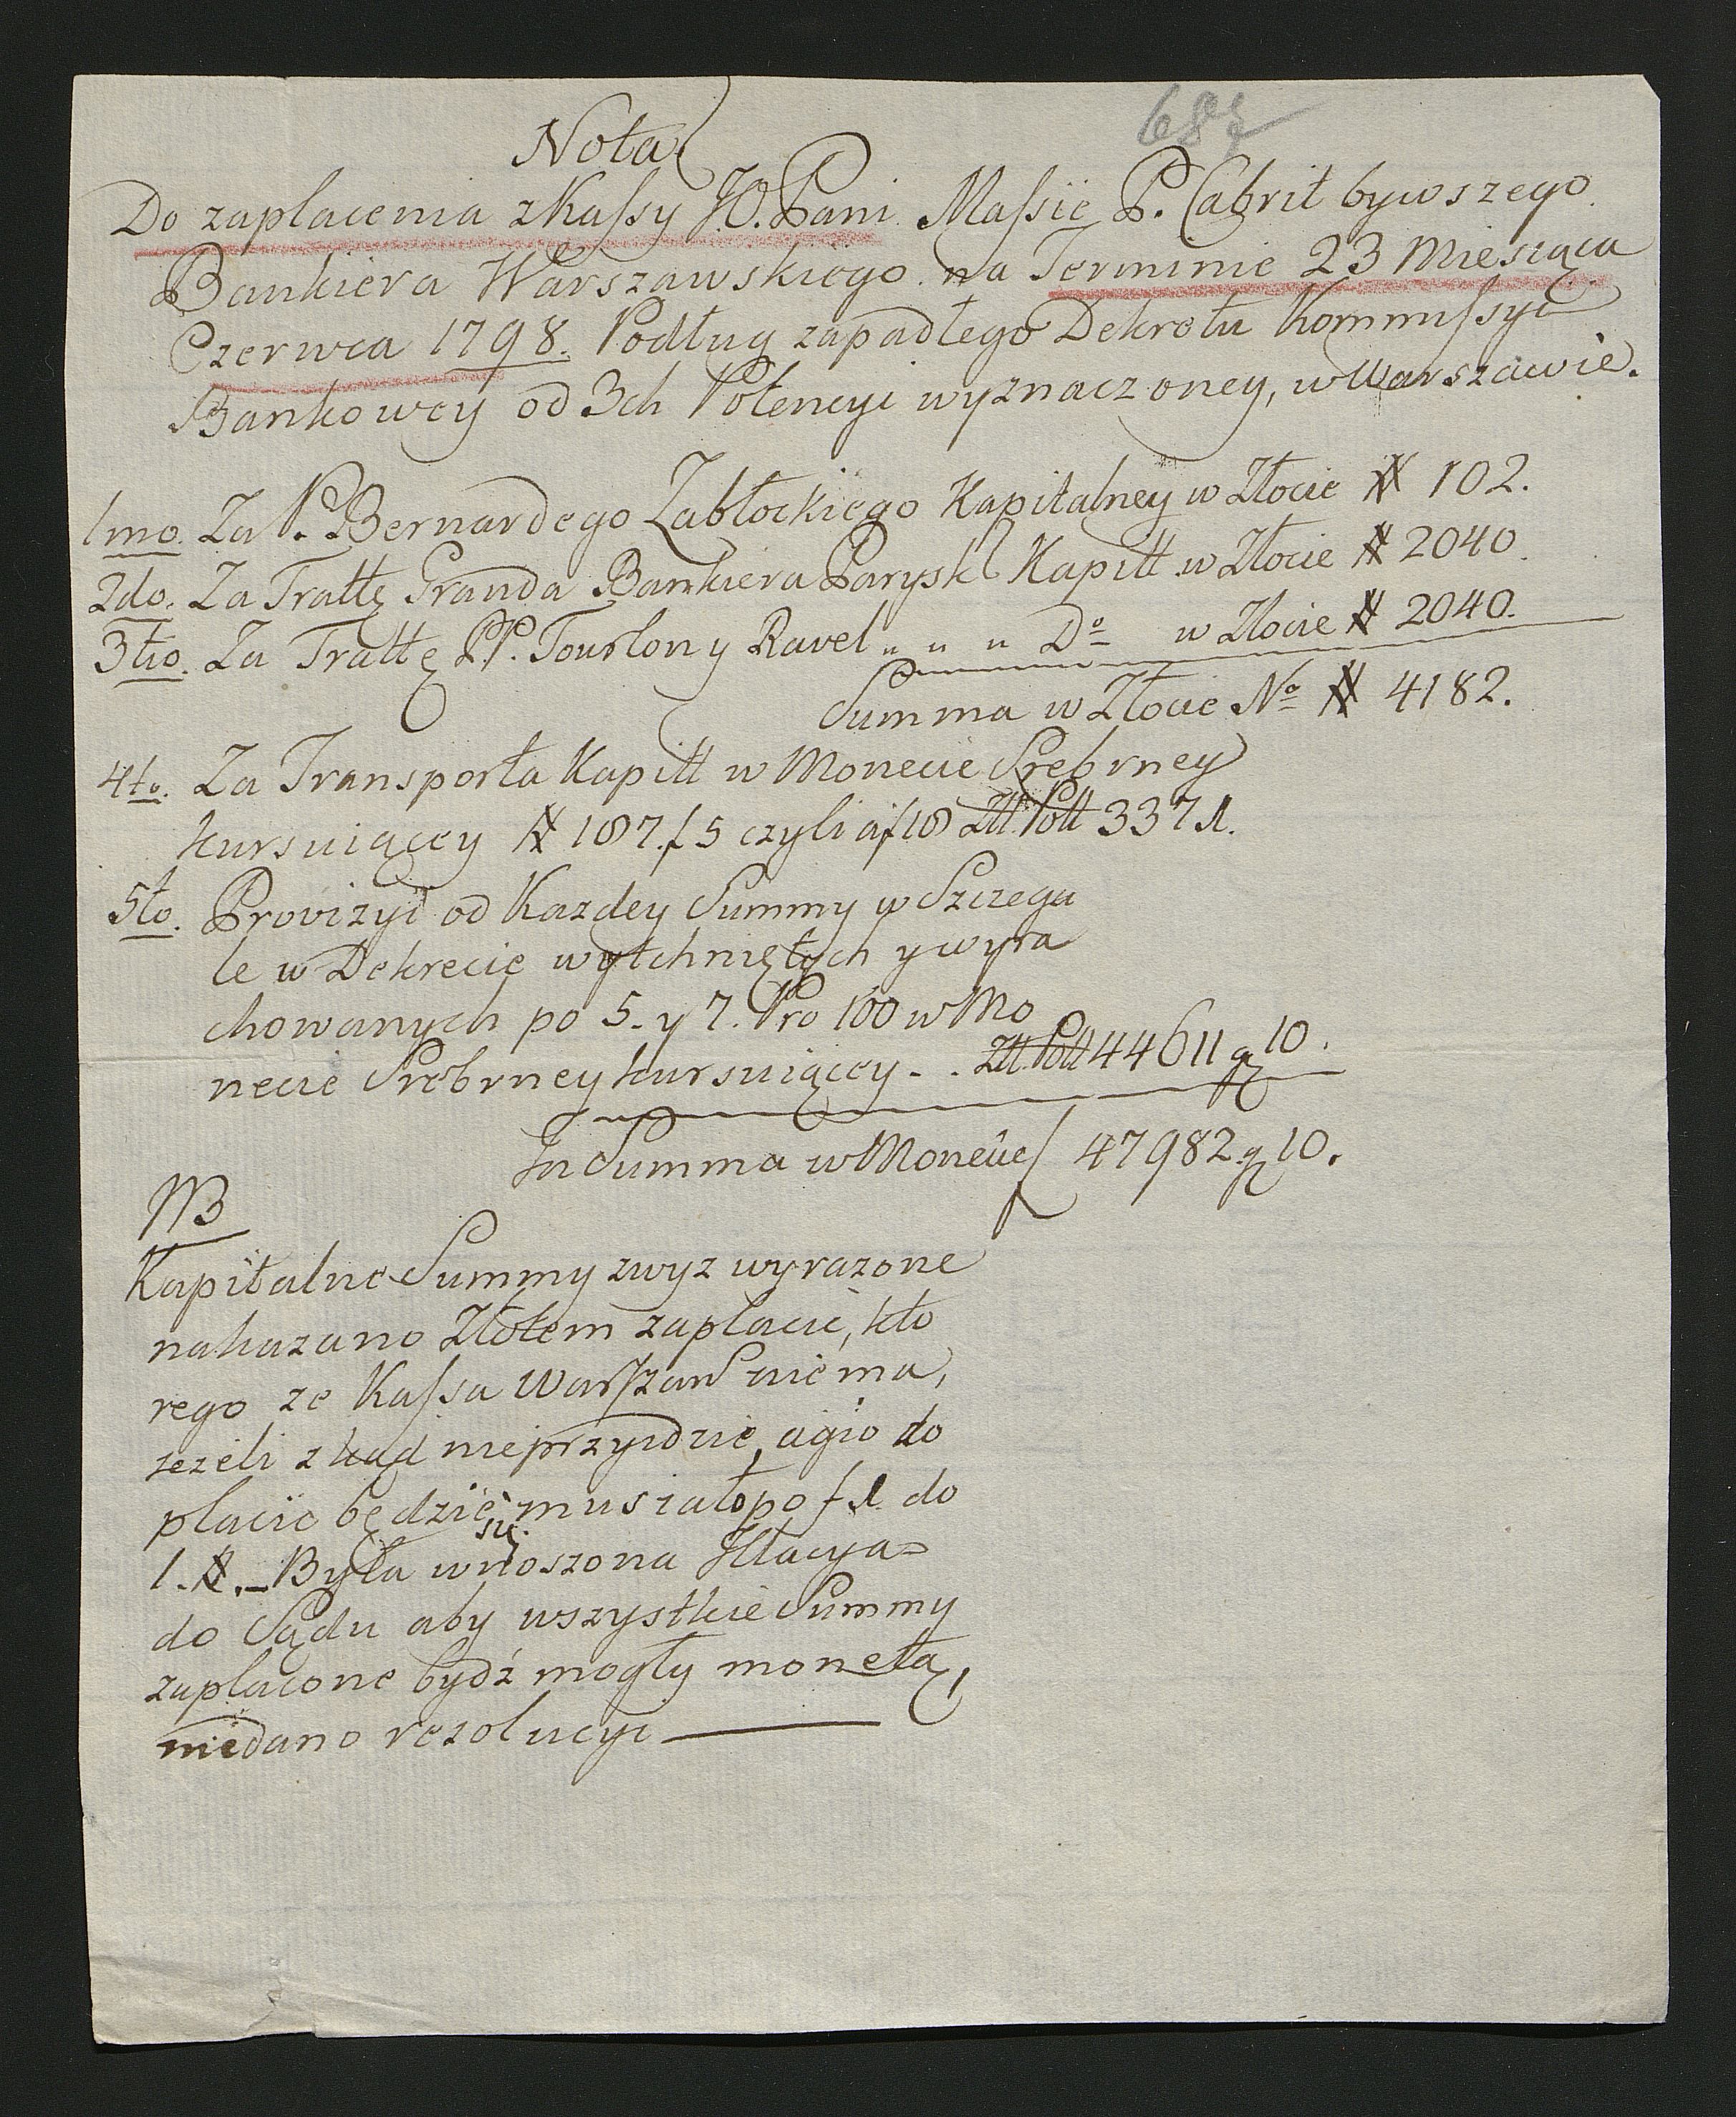 Nota
Do zapłacenia z Kassy J.O. Pani Massie P. Cabrit bywszego
Bankiera Warszawskiego na Terminie 23 Miesiąca
Czerwca 1798. Podług zapadłego Dekretu Kommissyi
Bankowey od 3ch Potencyi wyznaczoney, w Warszawie.
1mo. Za P. Bernardego Zabłockiego Kapitalney w Złocie # 102.
2do. Za Trattę Granda Bankiera Parysk Kapitt w Złocie # 2040.
3tio. Za Trattę PP. Tourton y Ravel " " " Do w Złocie # 2040.
Summa w Złocie No # 4182.
4to. Za Transporta Kapitt w Monecie Srebrney
kursuiącey # 187. f 5 czyli a f 18 Złt. Poll 3371.
5to. Provizyi od Kazdey Summy w Szczegu
le w Dekrecie wytchniętych y wyra
chowanych po 5. y 7. Pro 100 w Mo
necie Srebrney kursuiącey - . Złt. Poll 44611 g 10.
In Summa w Monecie f 47982 g 10.
NB
Kapitalne Summy zwyz wyrazone
nakazano Złotem zapłacić, kto
rego ze Kassa Warszaw nie ma,
jezeli z kąd nieprzyidzie, agio do
płacic będzie musiało po f 1. do
1. #. - Była wnoszona Illacya
się
do Sądu aby wszystkie Summy
zapłacone bydź mogły monetą,
niedano rezolucyi